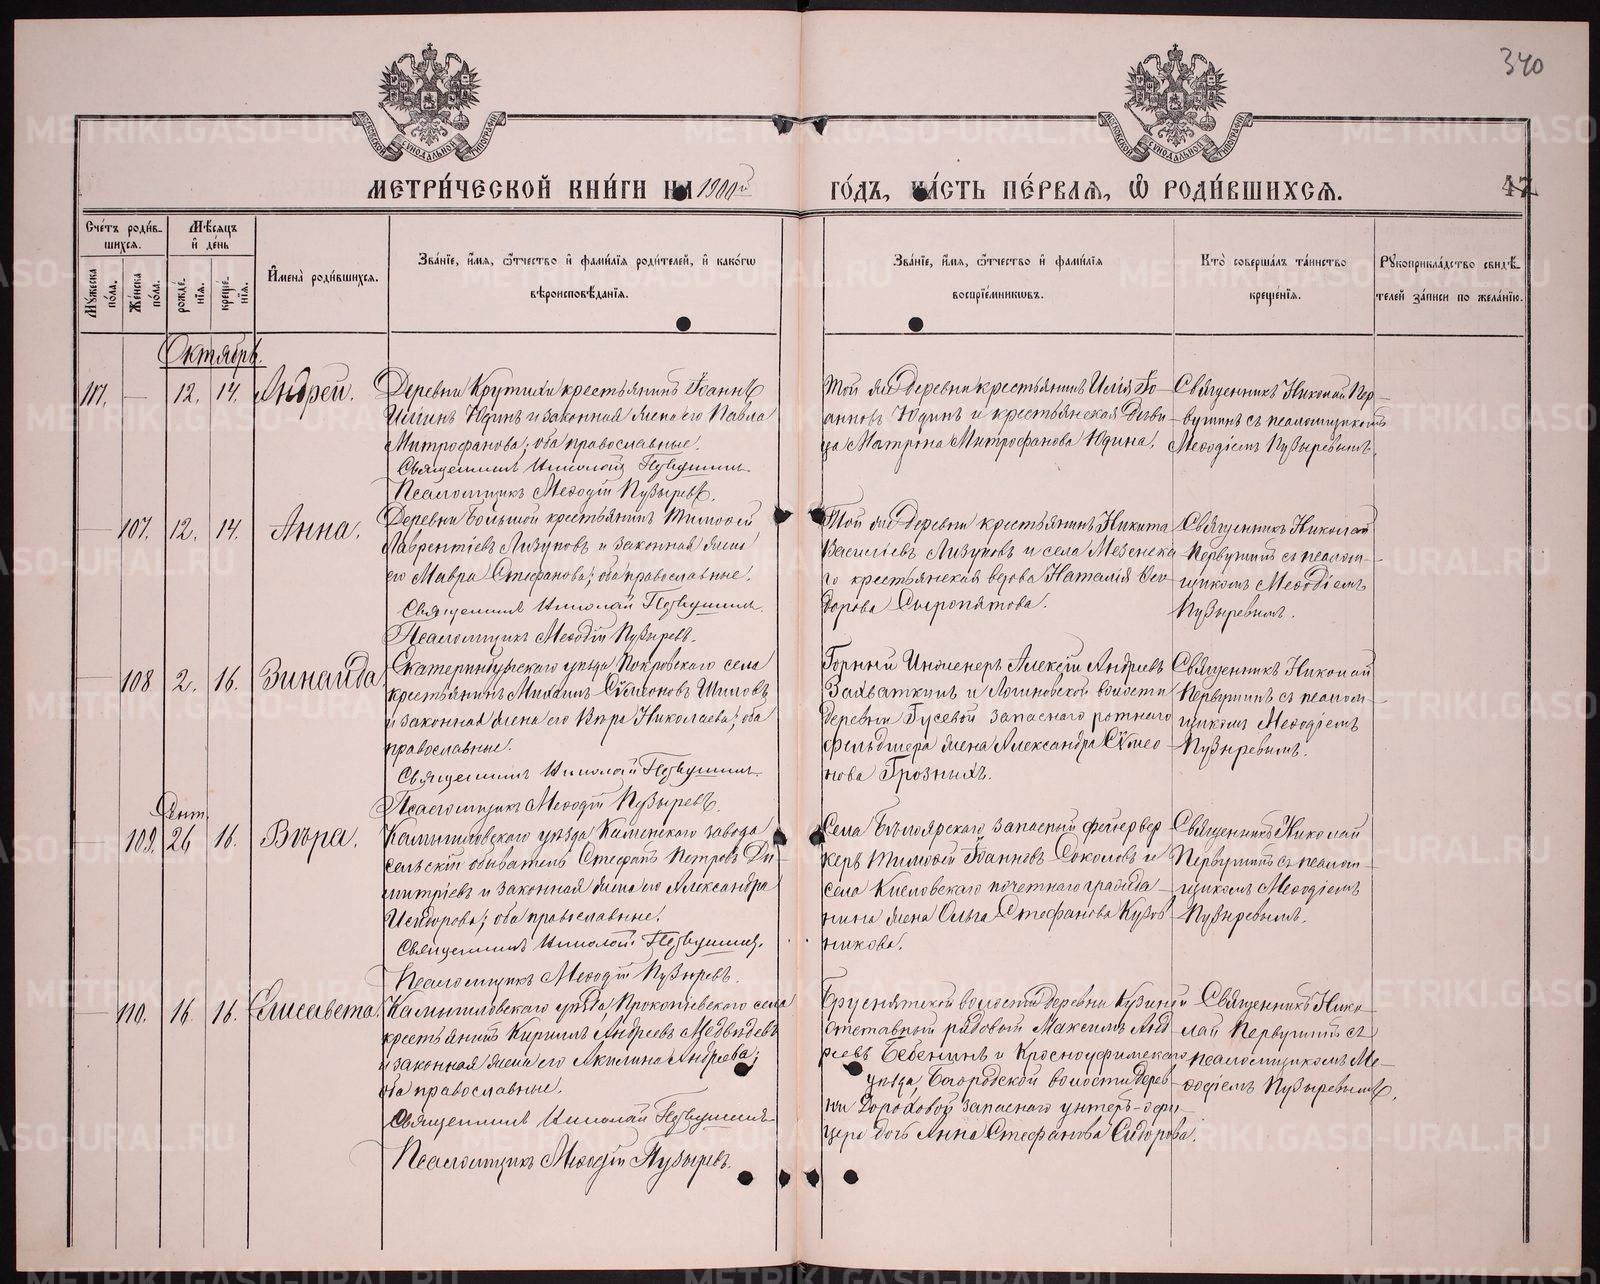 340
МОСКОВСКОЙ СѴНОДАЛЬНОЙ ТИПОГРАФІИ
МОСКОВСКОЙ СѴНОДАЛЬНОЙ ТИПОГРАФІИ
МЕТРИ́ЧЕСКОЙ КНИ́ГИ НА 1900й ГО́ДЪ, ЧА́СТЬ ПЕ́РВАЯ, Ѡ҆ РОДИ́ВШИХСЯ.
42
Сче́тъ роди́вшихся.
Мѣ́сяцъ и҆ де́нь
Мꙋ́жеска по́ла.
Же́нска по́ла.
рожде́нїя.
креще́нїя.
И҆мена̀ роди́вшихся.
Зва́нїе, и҆́мя, ѻ҆́тчество и҆ фами́лїя роди́телей, и҆ како́гѡ вѣроисповѣ́данїя.
Зва́нїе, и҆́мя, ѻ҆́тчество и҆ фами́лїя воспрїе́мникѡвъ.
Кто̀ соверша́лъ та́инство креще́нїя.
Рꙋкоприкла́дство свидѣ́телей за́писи по жела́нїю.
Октябрь.
107. — 12. 14. Андрей.
Деревни Крутихи крестьянинъ Іоаннъ
Иліинъ Юдинъ и законная жена его Павла
Митрофанова; оба православные.
Священникъ Николай Первушинъ.
Псаломщикъ Меѳодій Пузыревъ.
Той же деревни крестьянинъ Илія Іо-
анновъ Юдинъ и крестьянская дѣви-
ца Матрона Митрофанова Юдина.
Священникъ Николай Пер-
вушинъ съ псаломщикомъ
Меѳодіемъ Пузыревымъ.
— 107. 12. 14. Анна.
Деревни Большой крестьянинъ Тимоѳей
Лаврентіевъ Лизуновъ и законная жена
его Мавра Стефанова; оба православные.
Священникъ Николай Первушинъ.
Псаломщикъ Меѳодій Пузыревъ.
Той же деревни крестьянинъ Никита
Васильевъ Лизуновъ и села Мезенска-
го крестьянская вдова Наталія Ѳео-
дорова Сыропятова.
Священникъ Николай
Первушинъ съ псалом-
щикомъ Меѳодіемъ
Пузыревымъ.
— 108 2. 16. Зинаида
Екатеринбургскаго уѣзда Покровскаго села
крестьянинъ Михаилъ Сѵмеоновъ Шиловъ
и законная жена его Вѣра Николаева; оба
православные.
Священникъ Николай Первушинъ.
Псаломщикъ Меѳодій Пузыревъ.
Горный Инженеръ Алексій Андреевъ
Захваткинъ и Логиновской волости
деревни Гусевой запаснаго ротнаго
фельдшера жена Александра Сѵмео-
нова Грозныхъ.
Священникъ Николай
Первушинъ съ псалом-
щикомъ Меѳодіемъ
Пузыревымъ.
Сент.
— 109. 26 16. Вѣра.
Камышловскаго уѣзда Каменскаго завода
сельскій обыватель Стефанъ Петровъ Ди-
митріевъ и законная жена его Александра
Исидорова; оба православные.
Священникъ Николай Первушинъ.
Псаломщикъ Меѳодій Пузыревъ.
Села Бѣлоярскаго запасный фейервер-
керъ Тимоѳей Іоанновъ Соколовъ и
села Кисловскаго почетнаго гражда-
нина жена Ольга Стефанова Кузов-
никова.
Священникъ Николай
Первушинъ съ псалом-
щикомъ Меѳодіемъ
Пузыревымъ.
— 110. 16. 16. Елисавета.
Камышловскаго уѣзда, Прокопьевскаго села
крестьянинъ Кириллъ Андреевъ Медвѣдевъ
и законная жена его Акилина Андреева;
оба православные.
Священникъ Николай Первушинъ.
Псаломщикъ Меѳодій Пузыревъ.
Бруснятской волости деревни Кузиной
отставный рядовый Максимъ Анд-
реевъ Бебенинъ и Красноуфимскаго
уѣзда Богородской волости дерев-
ни Дороховой запаснаго унтеръ-офи-
цера дочь Анна Стефанова Сидорова.
Священникъ Нико-
лай Первушинъ съ
псаломщикомъ Ме-
ѳодіемъ Пузыревымъ.
METRIKI.GASO-URAL.RU